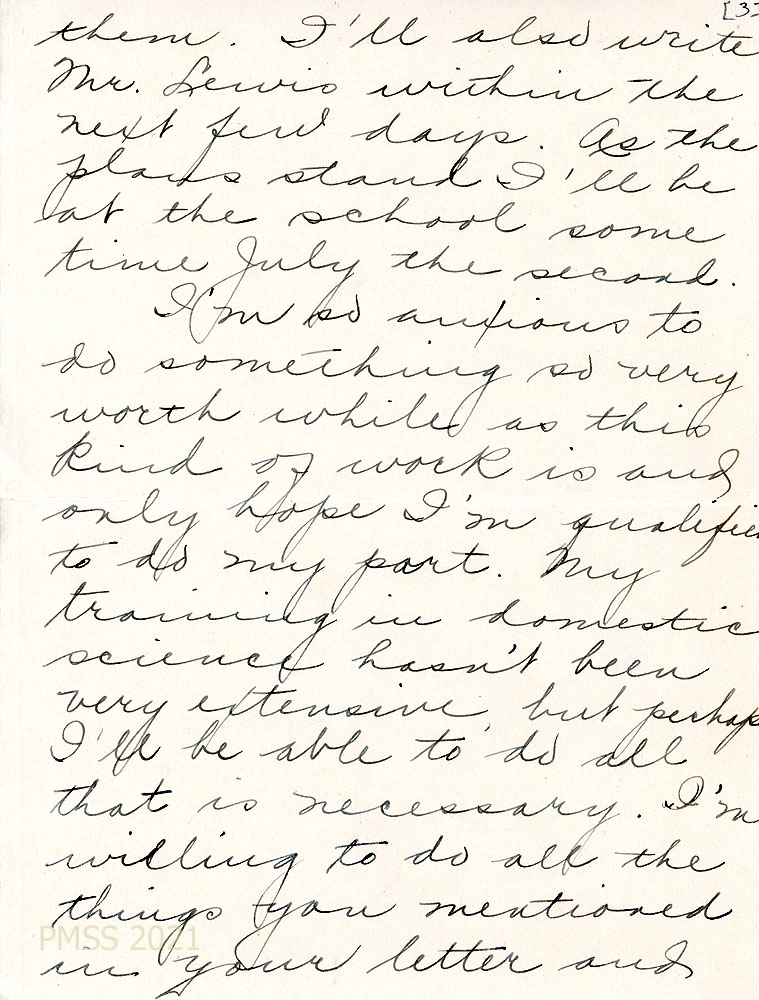 [3]
them. I'll also write
Mr. Lewis within the
next few days. As the
plans stand I'll be
at the school some
time July the second.
I'm so anxious to
do something so very
worth while as this
kind of work is and
only hope I'm qualified
to do my part. My
training in domestic
science hasn't been
very extensive, but perhaps
I'll be able to do all
that is necessary. I'm
willing to do all the
things you mentioned
PMSS 2021
in your letter and